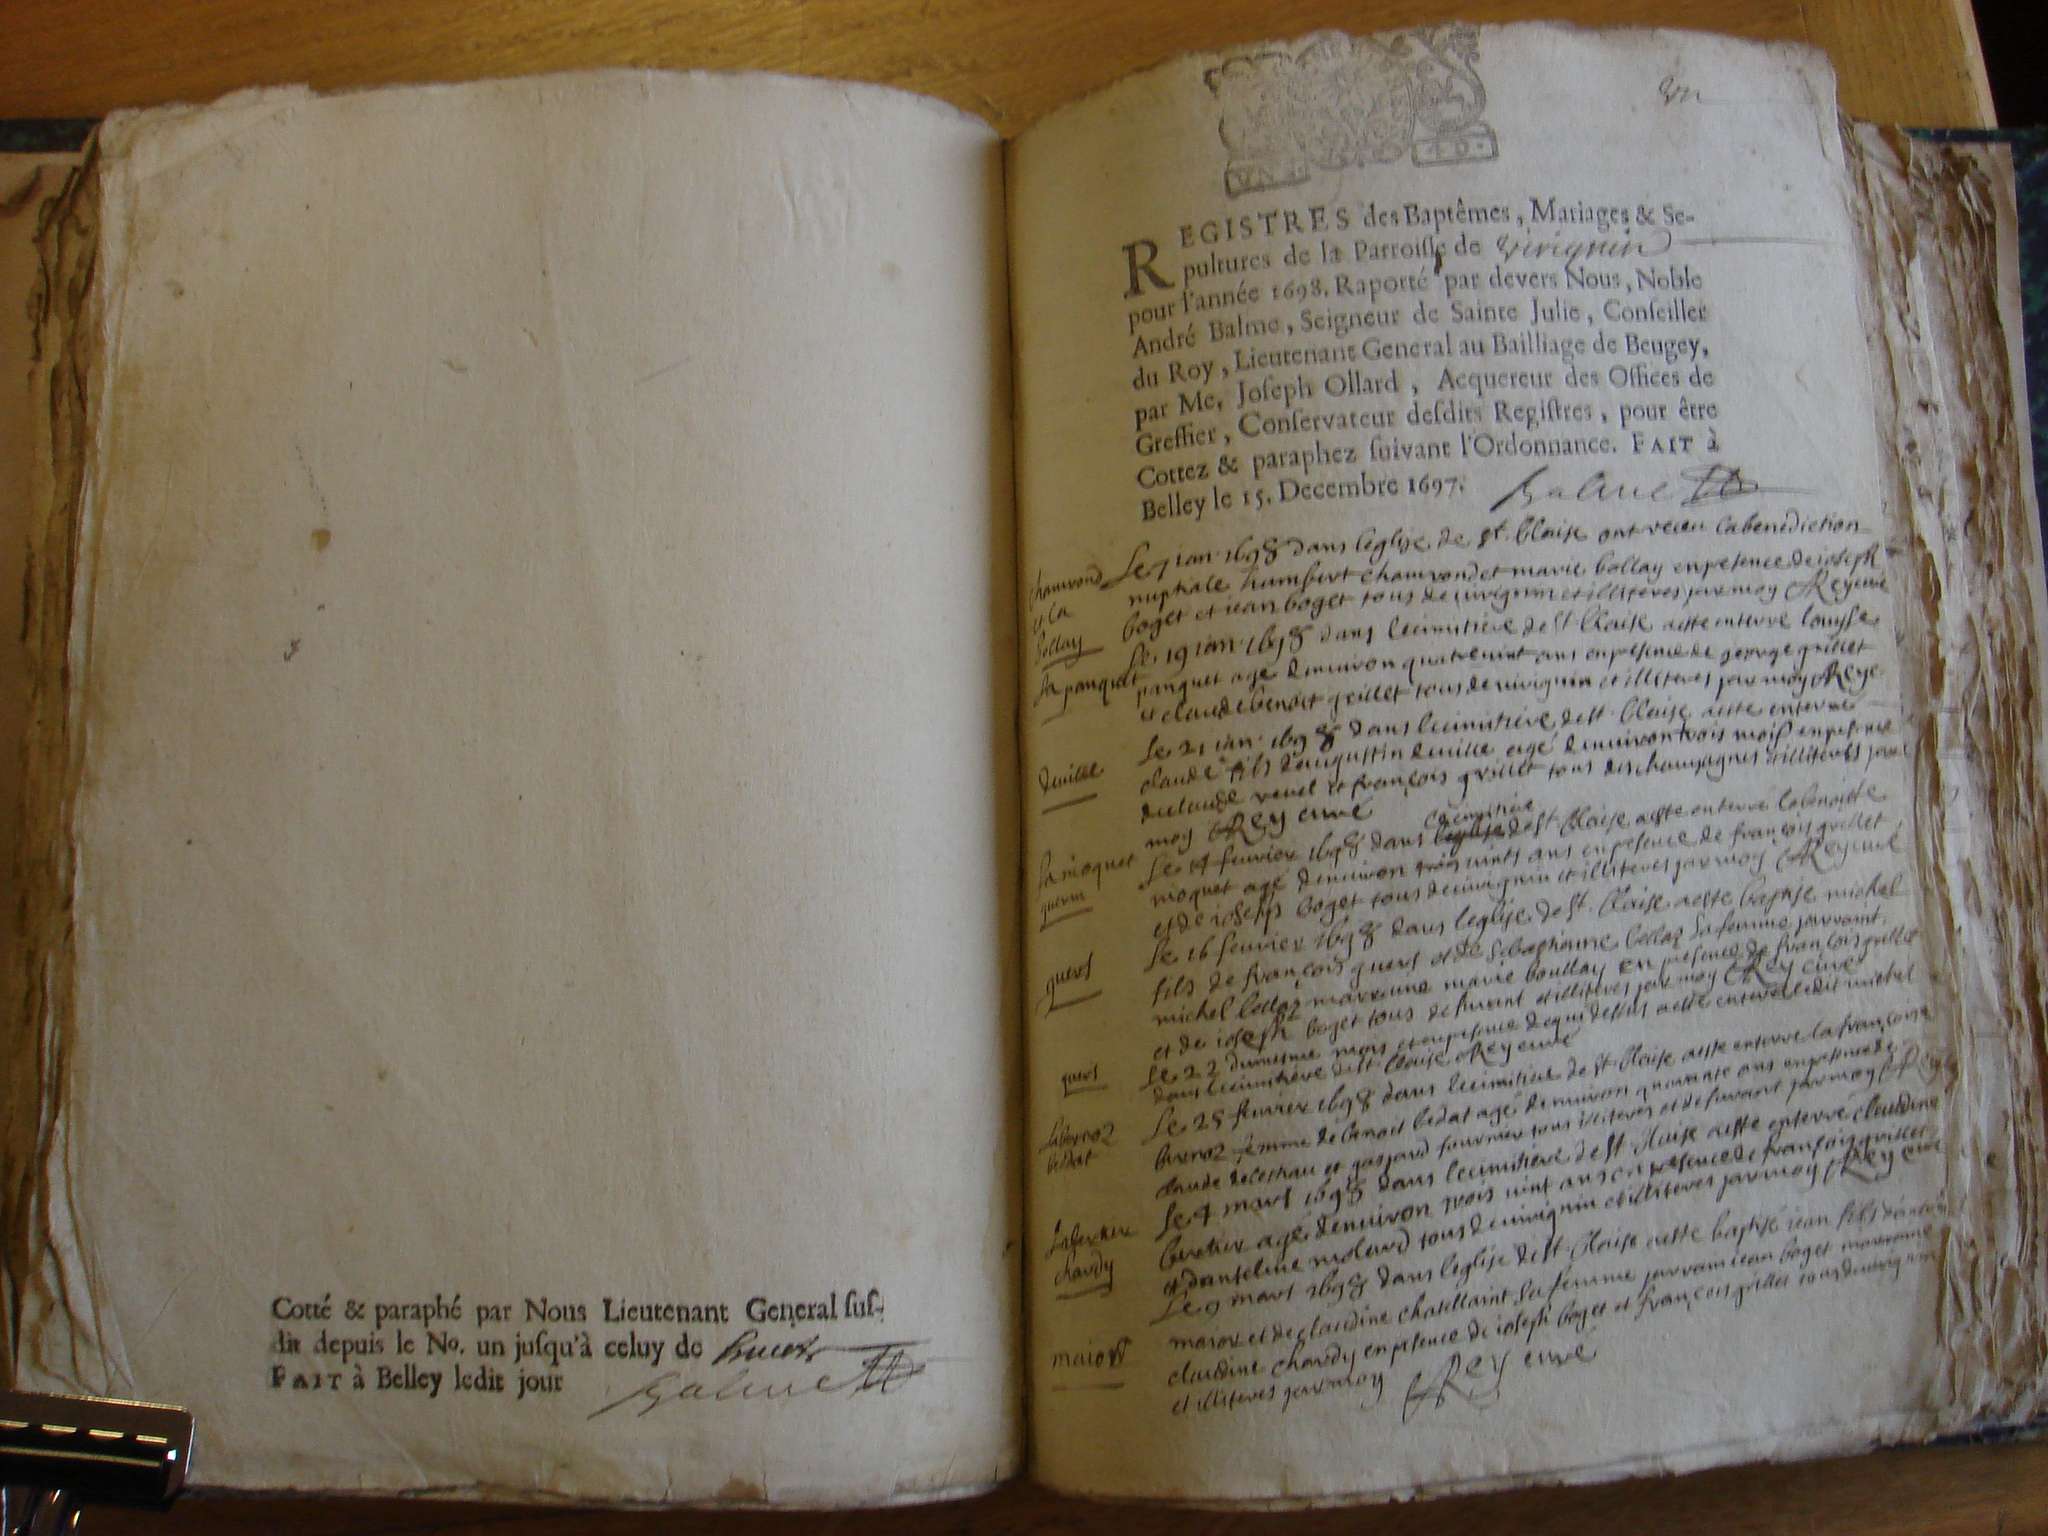 Cotté & paraphé par Nous Lieutenant General suf-
dit depuis le No. un jusqu'à celuy de
FAIT à Belley ledit jour Balme
un
UN
REGISTRES des Baptêmes, Mariages & Se-
pultures de la Parroisse de virignin
pour l'année 1698. Raporté par devers Nous, Noble
André Balme, Seigneur de Sainte Julie, Conseiller
du Roy, Lieutenant General au Bailliage de Beugey,
par Me. Joseph Ollard, Acquereur des Offices de
Greffier, Conservateur desdits Registres, pour être
Cottez & paraphez suivant l'Ordonnance. FAIT à
Belley le 15. Decembre 1697. Balme
chamrond
et la
bollay
Le 7 ian. 1698 dans leglise de st. blaise ont receu la benediction
nuptiale humbert chamrond et marie bollay en presence de ioseph
boget et iean boget tous de virignin et illiteres par moy Rey curé
la panquet
Le 19 ian. 1698 dans le cimitiere de st blaise a este enterré
panquet age denuiron quatreuint ans en presence de george grillet
et claude benoit grillet tous de virignin et illiteres par moy Rey
deuille
Le 21 ian. 1698 dans le cimitiere de st. blaise a este enterré
claude fils daugustin deuille agé denuiron trois mois en presence
de claude revel et françois grillet tous des champagnes illiteres par
moy Rey curé
la moquet
Le 14 feurier 1698 dans le cimitiere de st blaise a este enterré la benoiste
moquet agé denuiron trois vints ans en presence de françois grillet
et de ioseph boget tous de virignin et illiteres par moy Rey curé
guers
Le 16 feurier 1698 dans leglise de st. blaise a este baptisé michel
fils de françois guers et de sebastianne sa femme parrain
michel marreine marie boullay en presence de françois grillet
et de ioseph boget tous de et illiteres par moy Rey curé
guers
Le 22 du mesme mois et en presence de qui dessus a este enterré ledit michel
dans le cimitiere de st. blaise Rey curé
Le 25 feurier 1698 dans le cimitiere de st blaise a este enterré la françoise
femme de benoit bedat agé denuiron quarante ans en presence de
claude et gaspard tous illiteres et par moy Rey
chardy
Le 4 mars 1698 dans le cimitiere de st blaise a este enterré claudine
agé denuiron trois uint ans en presence de françois grillet
et molard tous de virignin et illiteres par moy Rey curé
maior
Le 9 mars 1698 dans leglise de st. blaise a este baptisé iean fils
maior et de claudine chatillaint sa femme parrain iean boget marraine
claudine chardy en presence de ioseph boget et françois grillet tous de virignin
et illiteres par moy Rey curé